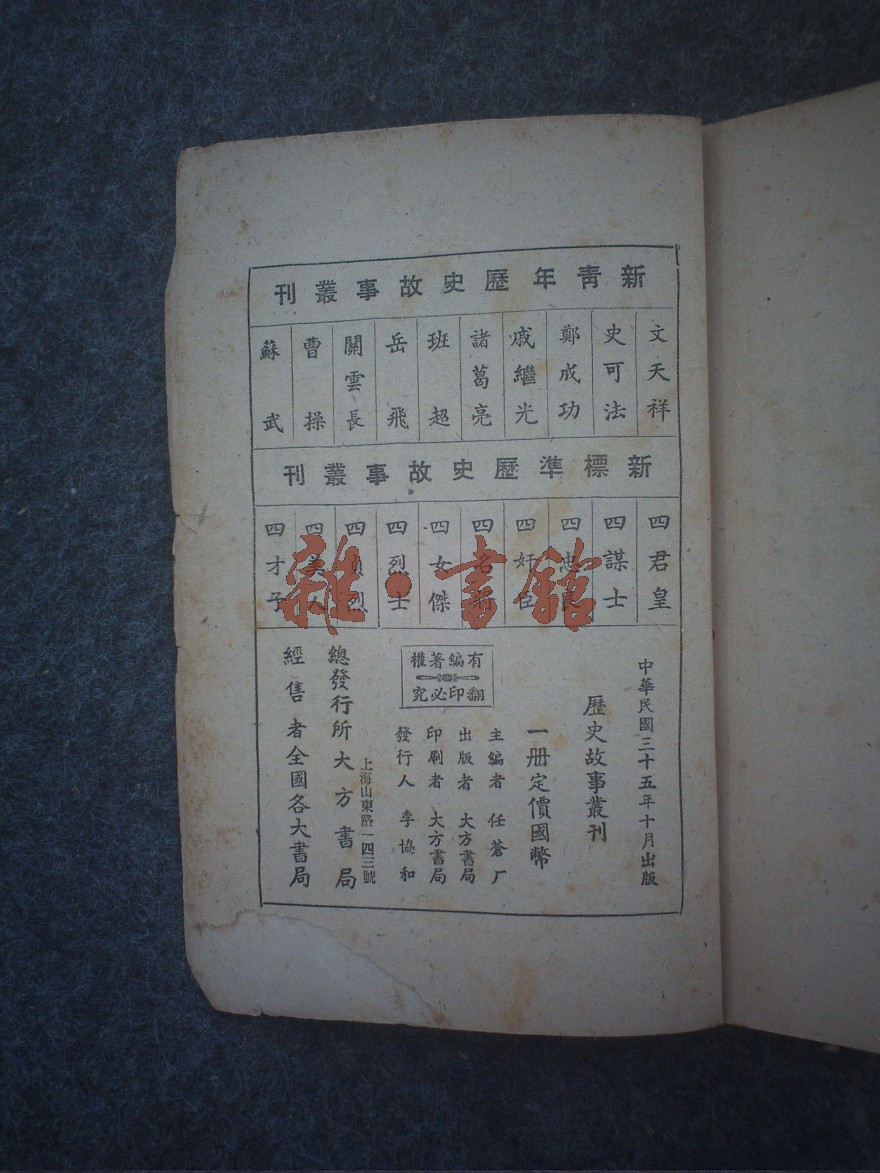 新青年歷史故事叢刊
文天祥
史可法
鄭成功
戚繼光
諸葛亮
班超
岳飛
關雲長
曹操
蘇武
新標準歷史故事叢刊
四君皇
四謀士
四忠良
四奸臣
四名將
四女傑
四烈士
四貞烈
四美人
四才子
雜·書館
中華民國三十五年十月出版
歷史故事叢刊
一册定價國幣
有編著權
翻印必究
主編者 任蒼厂
出版者 大方書局
印刷者 大方書局
發行人 李協和
上海山東路一四三號
總發行所大方書局
經售者全國各大書局